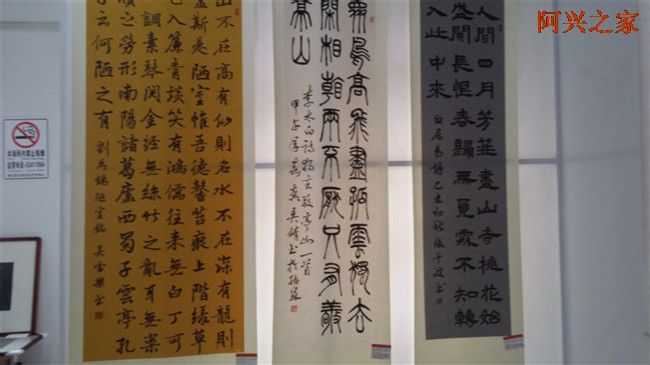 阿兴之家
人間四月芳菲盡山寺桃花始
盛開長恨春歸無覓處不知轉
入此中來
白居易詩
衆鳥高飛盡孤雲獨去
閑相看兩不厭只有敬
亭山
李太白詩獨坐敬亭山一首
山不在高有仙則名水不在深有龍則
靈斯是陋室惟吾德馨苔痕上階緑草
入簾青談笑有鴻儒往來無白丁可
調素琴閱金經無絲竹之亂耳無案
牘之勞形南陽諸葛廬西蜀子雲亭孔
子云何陋之有
劉禹錫陋室銘